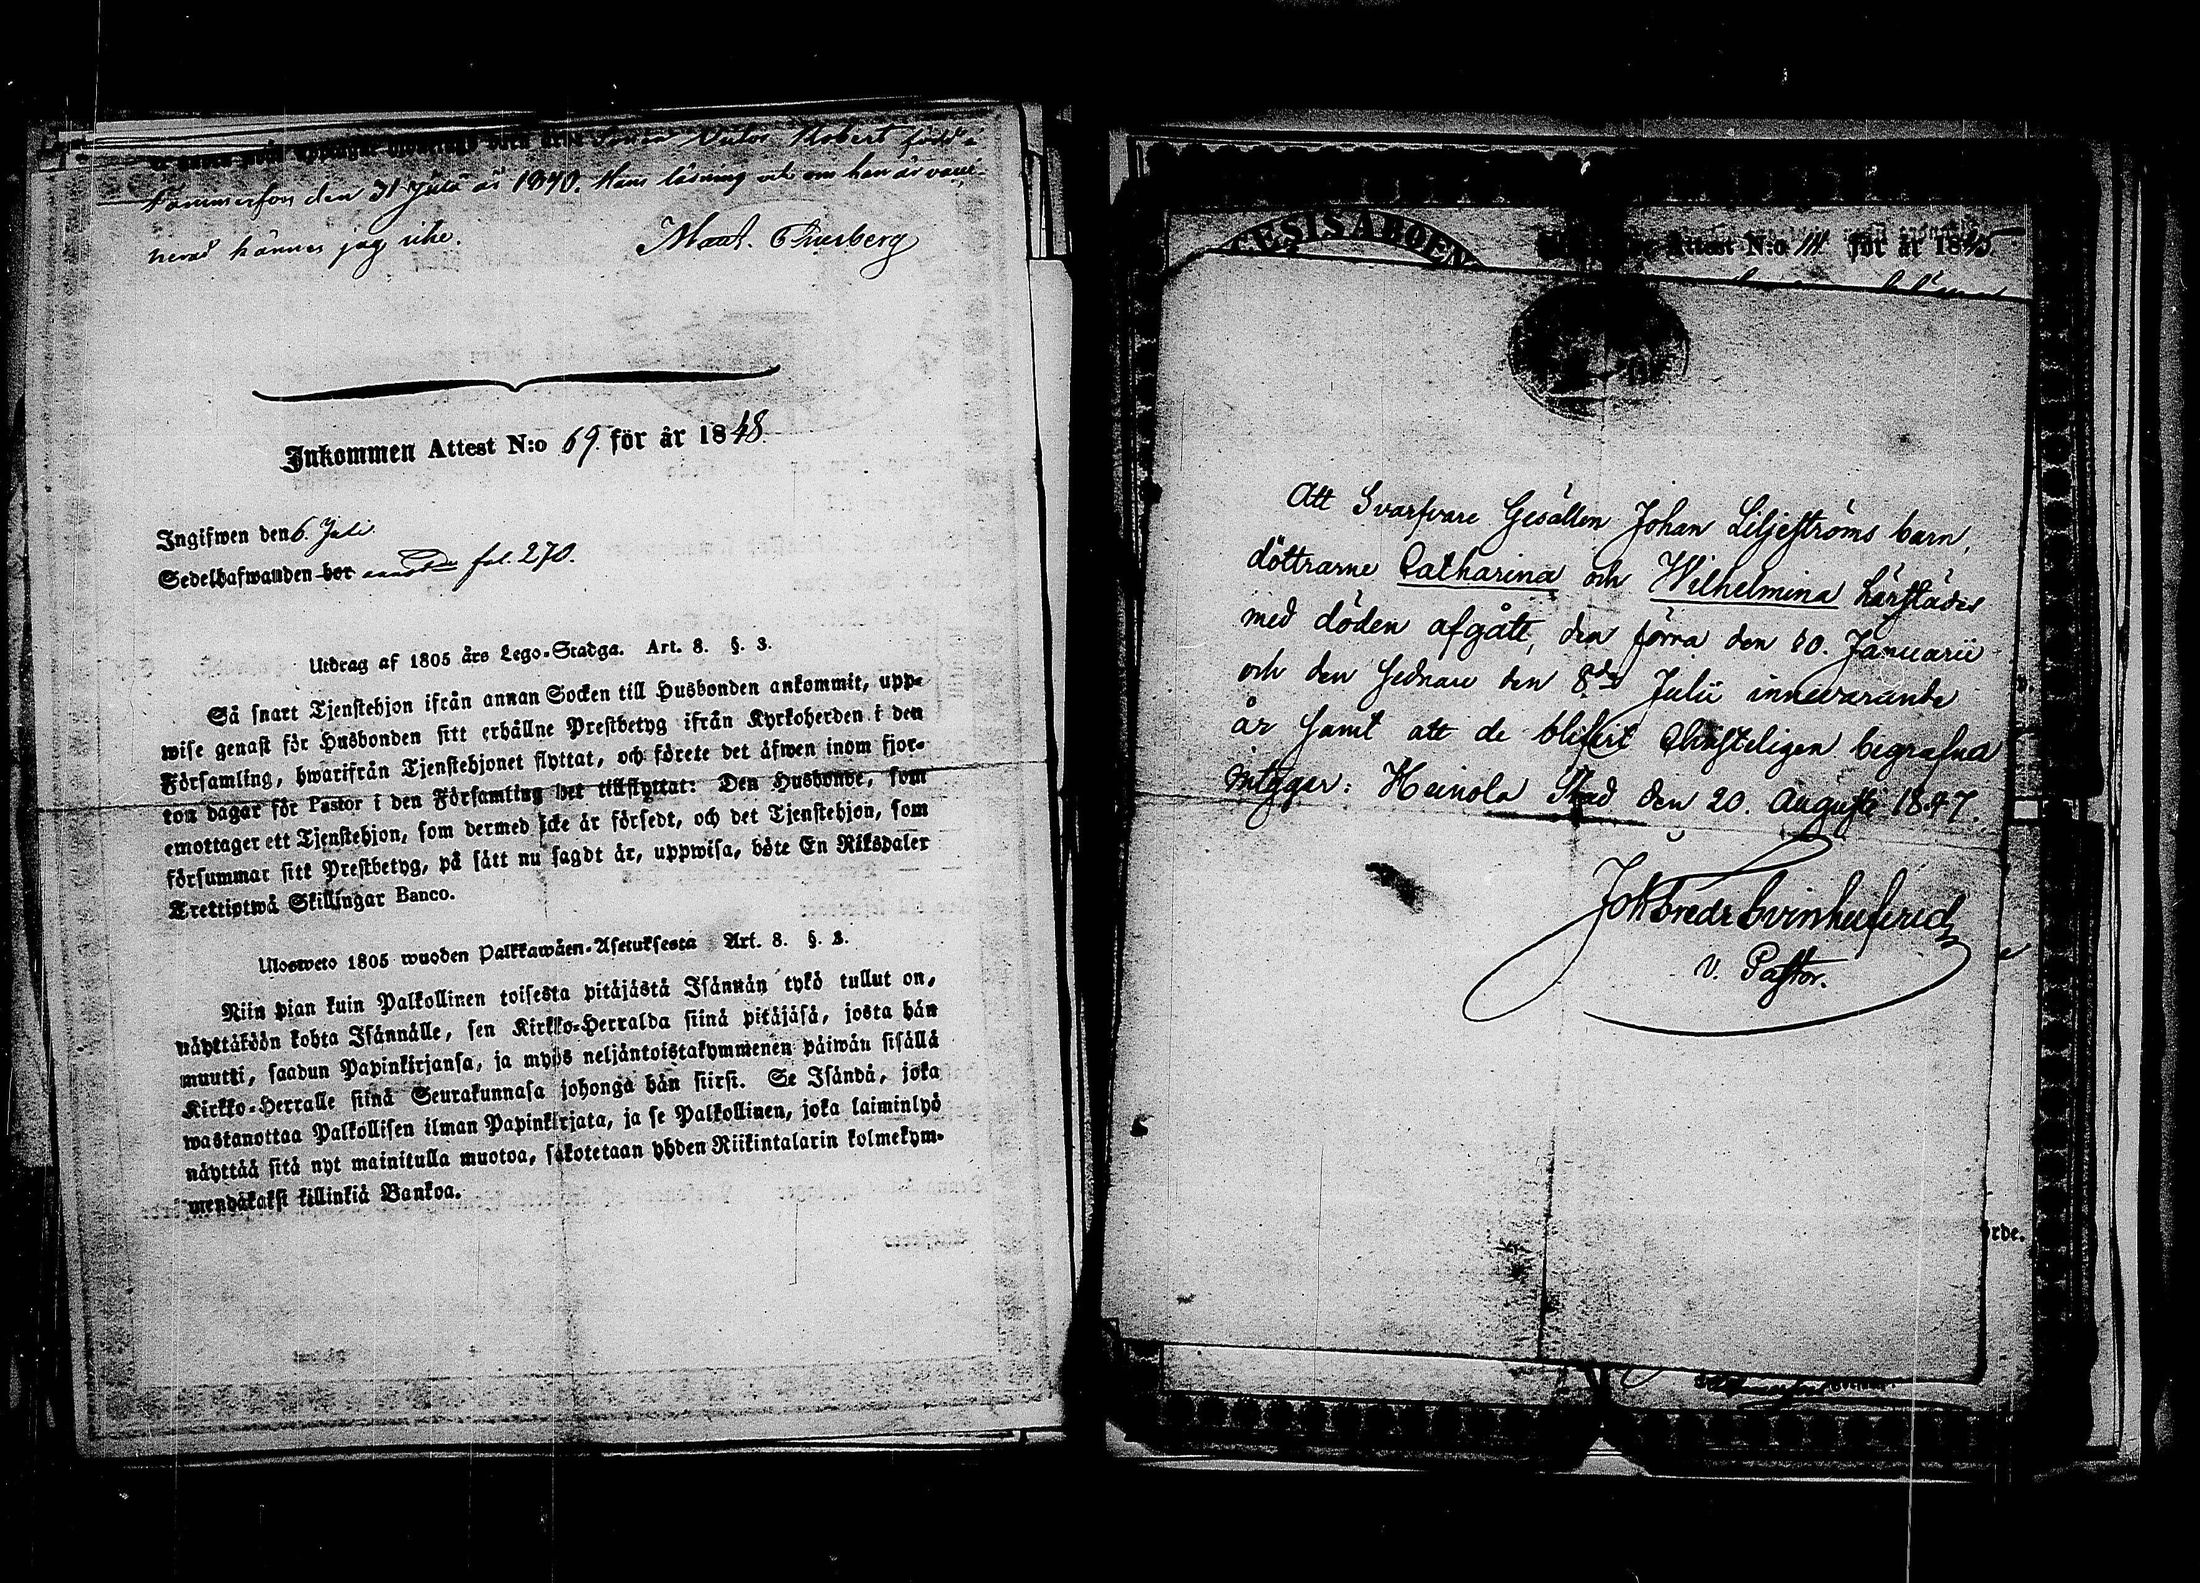 Sonen Victor Robert född i
Tammerfors den 31 Julii år 1840. Hans läsning och om han är vacci-
nerad kännes jag icke.
Inkommen Attest N:o 69. för år 1848.
Ingifwen den 6. Juli.
Sedelhafwanden bor fol. 270.
Utdrag af 1805 års Lego-Stadga. Art. 8. §. 3.
Så snart Tjenstehjon ifrån annan Socken till Husbonden ankommit, upp-
wise genast för Husbonden sitt erhållne Prestbetyg ifrån Kyrkoherden i den
Församling, hwarifrån Tjenstehjonet flyttat, och förete det äfwen inom fjor-
ton dagar för Pastor i den Församling det tillflyttat: Den Husbonde, som
emottager ett Tjenstehjon, som dermed icke är försedt, och det Tjenstehjon, som
försummar sitt Prestbetyg, på sätt nu sagdt är, uppwisa, böte En Riksdaler
Trettiotwå Skillingar Banco.
Ulosweto 1805 wuoden Palkkawäen-Asetuksesta Art. 8. §. 3.
Niin pian kuin Palkollinen toisesta pitäjästä Isännän tykö tullut on,
näyttäköön kohta Isännälle, sen Kirkko-Herralda siinä pitäjäsä, josta hän
muutti, saadun Papinkirjansa, ja myös neljäntoistakymmenen päiwän sisällä
Kirkko-Herralle siinä Seurakunnasa johonga hän siirsi. Se Isändä, joka
wastanottaa Palkollisen ilman Papinkirjata, ja se Palkollinen, joka laiminlyö
näyttää sitä nyt mainitulla muotoa, sakotetaan yhden Riikintalarin kolmekym-
mendäkaksi killinkiä Bankoa.
Attest N:o 111 för år 1845.
Att Svarfvare Gesällen Johan Liljeströms barn,
döttrarne Catharina och Wilhelmina härstädes
med döden afgått, den förra den 20. Januarii
och den sednare den 8de Julii innevarande
år samt att de blifvit Christeligen begrafna
intygar: Heinola Stad den 20. Augusti 1847.
Joh Fredr Svinhufvud
V. Pastor.